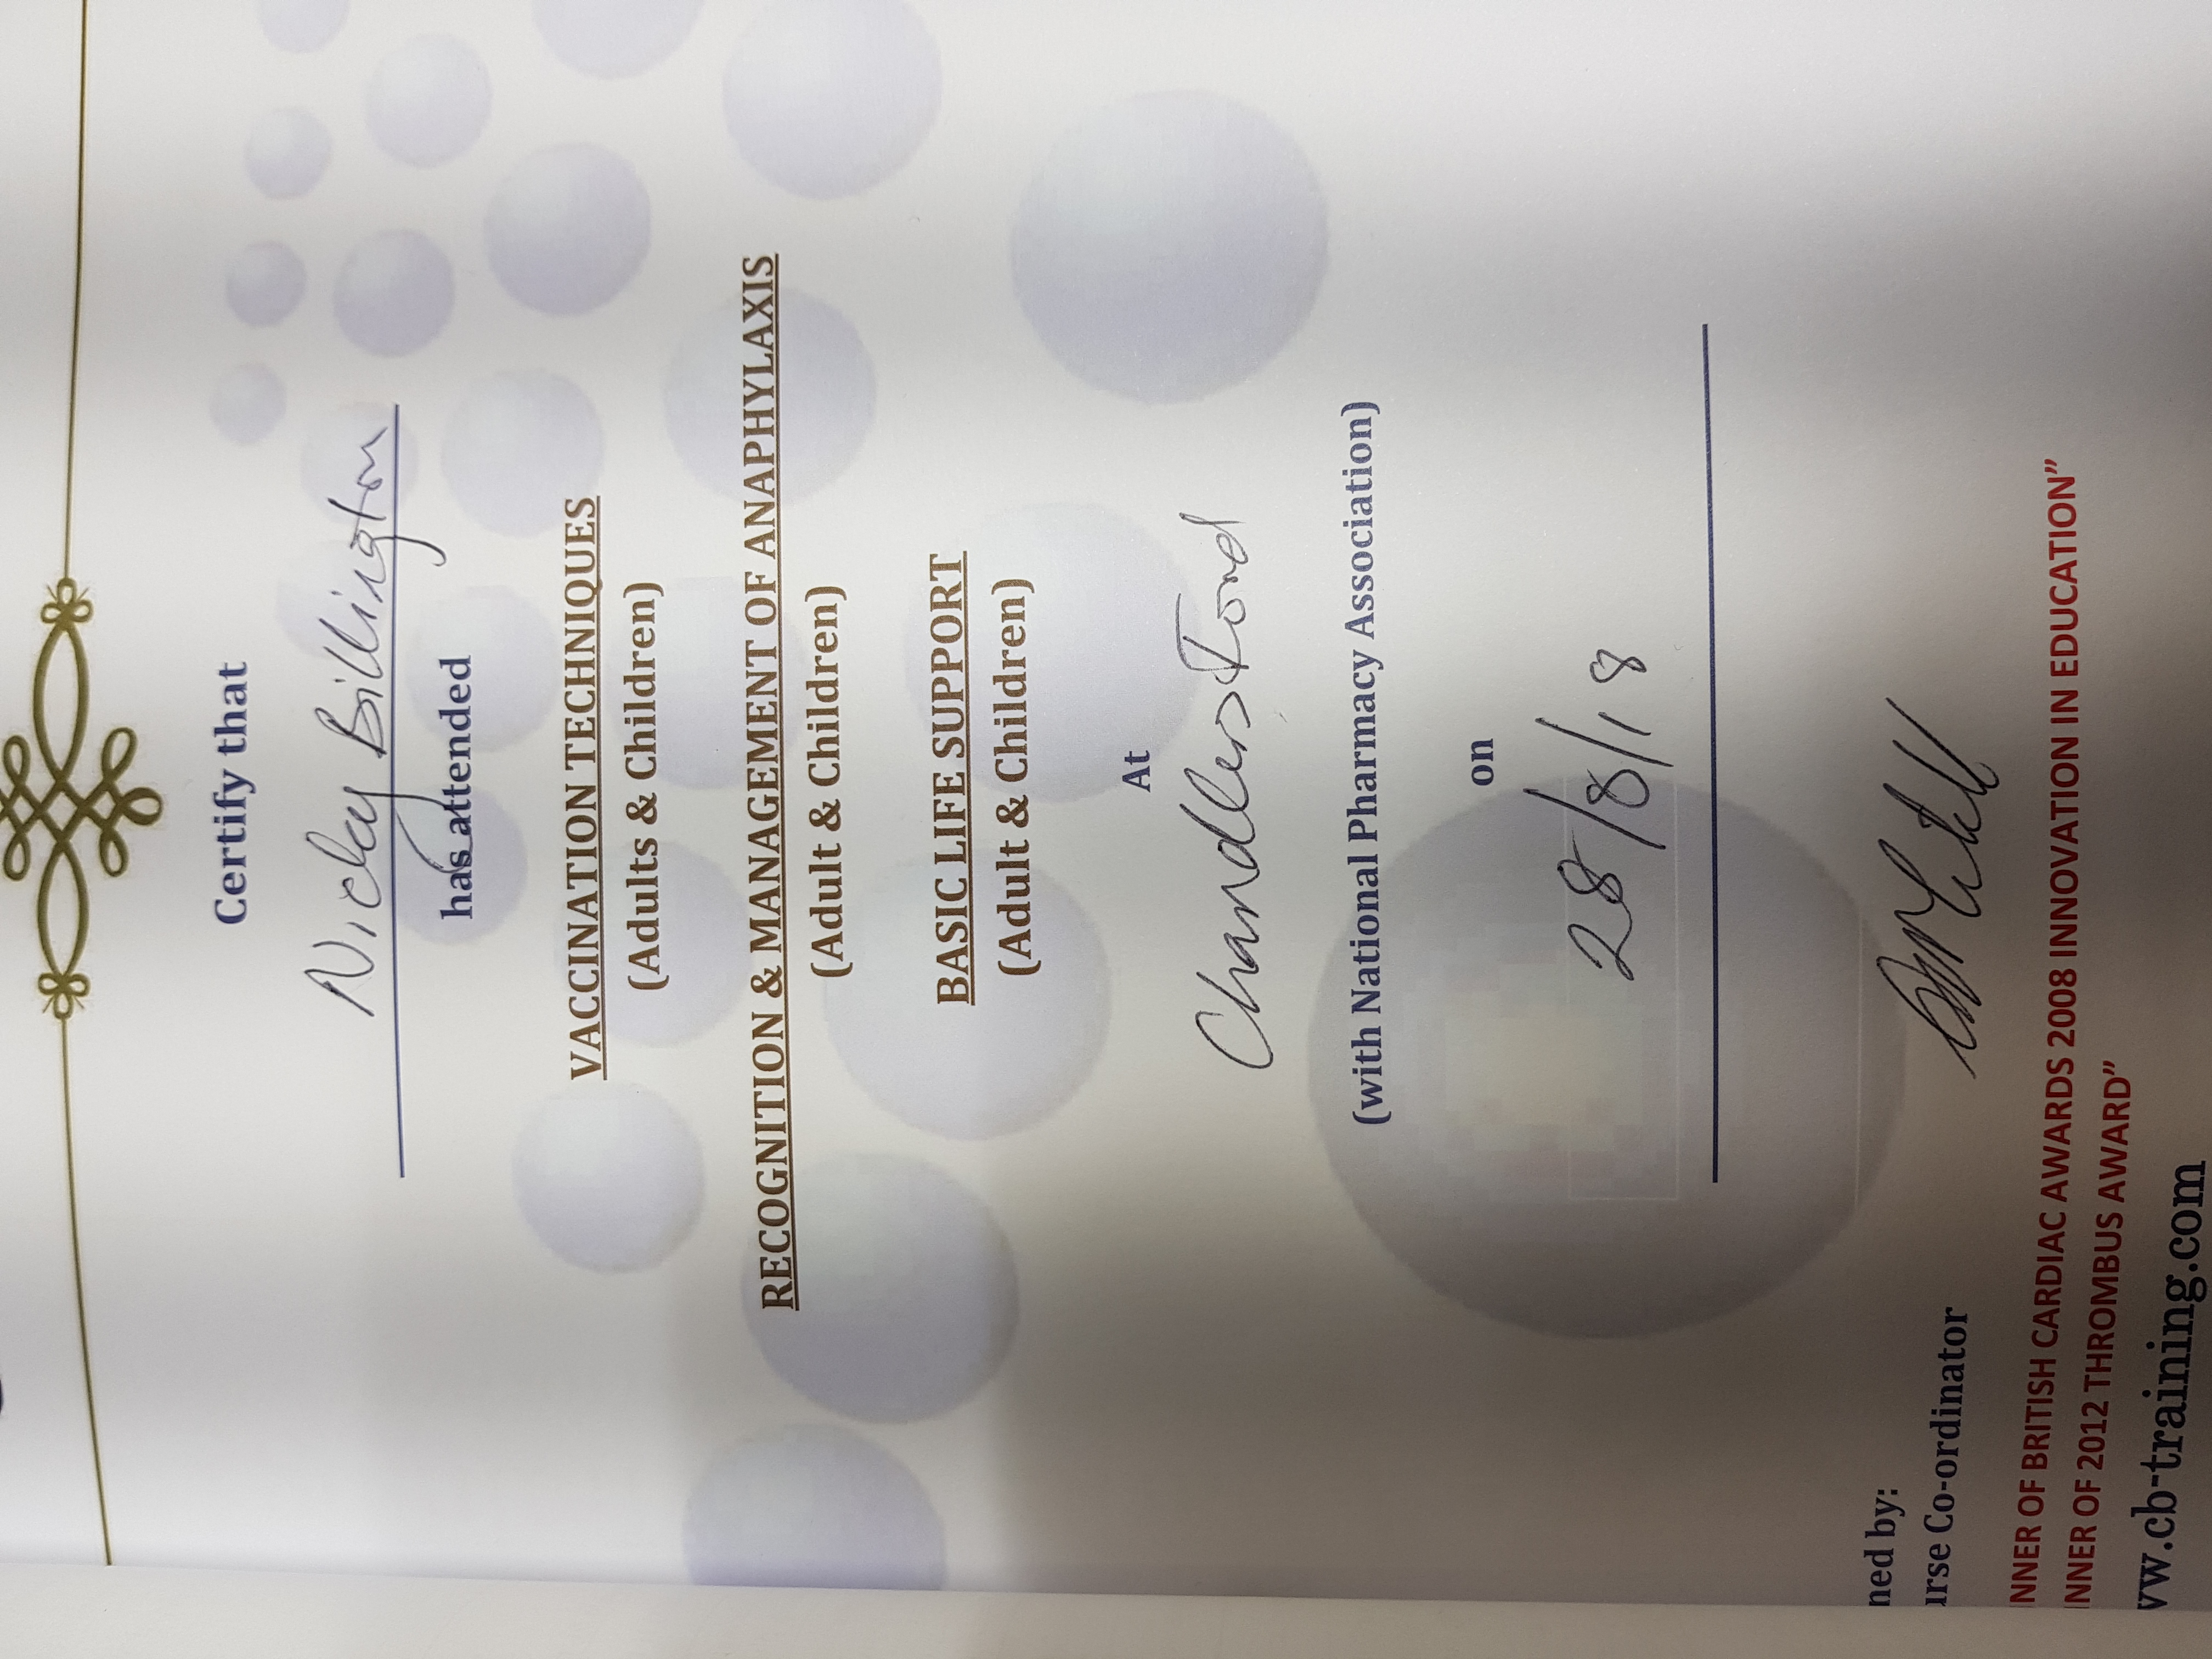 Certify that
Nicky Billington
has attended
VACCINATION TECHNIQUES
(Adults & Children)
RECOGNITION & MANAGEMENT OF ANAPHYLAXIS
(Adult & Children)
BASIC LIFE SUPPORT
(Adult & Children)
At
Chandlers Ford
(with National Pharmacy Association)
on
28/8/18
ned by:
urse Co-ordinator
NNER OF BRITISH CARDIAC AWARDS 2008 INNOVATION IN EDUCATION”
INNER OF 2012 THROMBUS AWARD”
ww.cb-training.com